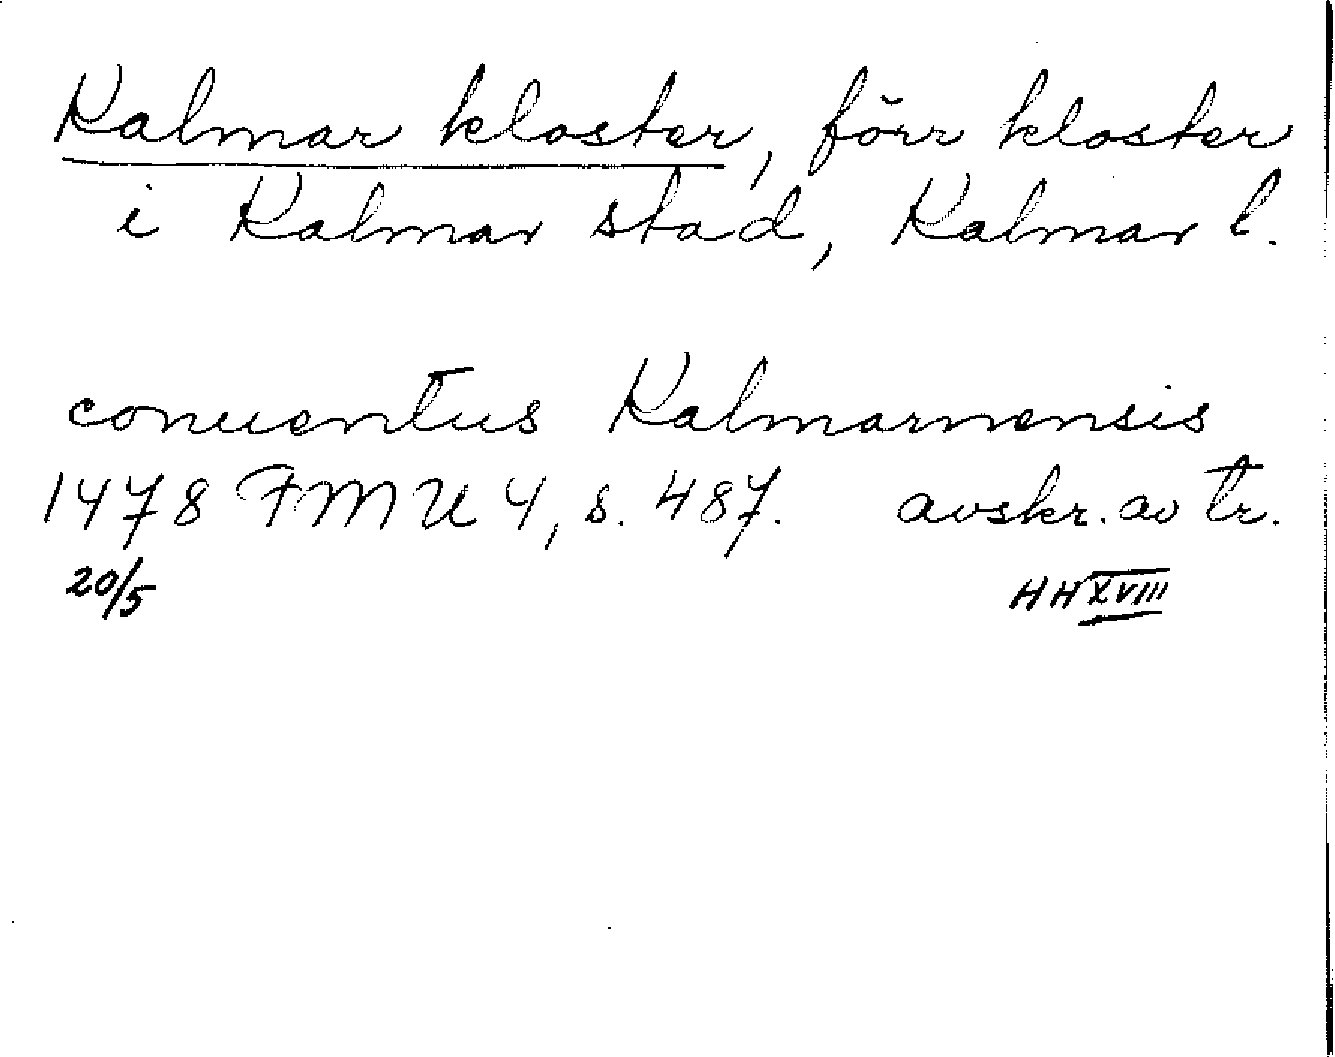 Kalmar kloster, förr kloster
i Kalmar stad, Kalmar l.
conuentus Kalmarnensis
1478 FMU 4, s. 487. avskr. av tr.
20/5 HH XVIII